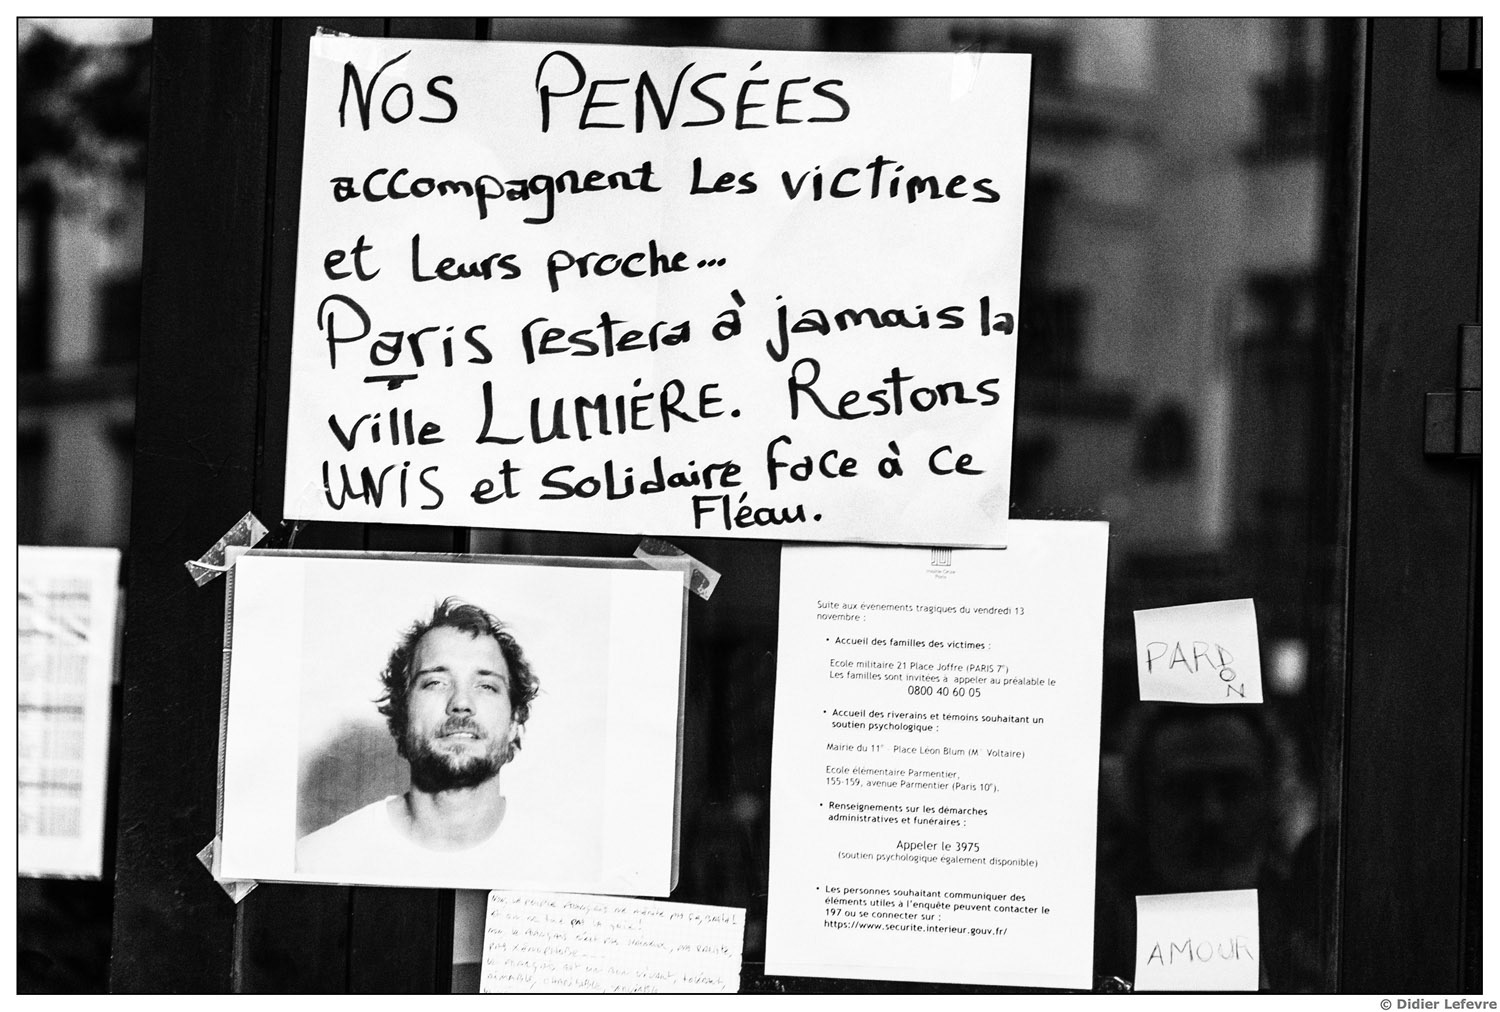 NOS PENSÉES
accompagnent les victimes
et leurs proche...
Paris restera à jamais la
ville LUMIÉRE. Restons
UNIS et Solidaire face à ce
Fléau.
Paris
Suite aux évenements tragiques du vendredi 13
novembre :
• Accueil des familles des victimes :
Ecole militaire 21 Place Joffre (PARIS 7°)
Les familles sont invitées à appeler au préalable le
0800 40 60 05
• Accueil des riverains et témoins souhaitant un
soutien psychologique :
Mairie du 11° - Place Léon Blum (M° Voltaire)
Ecole élémentaire Parmentier,
155-159, avenue Parmentier (Paris 10°).
• Renseignements sur les démarches
administratives et funéraires :
Appeler le 3975
(soutien psychologique également disponible)
• Les personnes souhaitant communiquer des
éléments utiles à l'enquête peuvent contacter le
197 ou se connecter sur :
https://www.securite.interieur.gouv.fr/
PARDON
AMOUR
Non, le peuple français ne mérite pas ça,
© Didier Lefevre